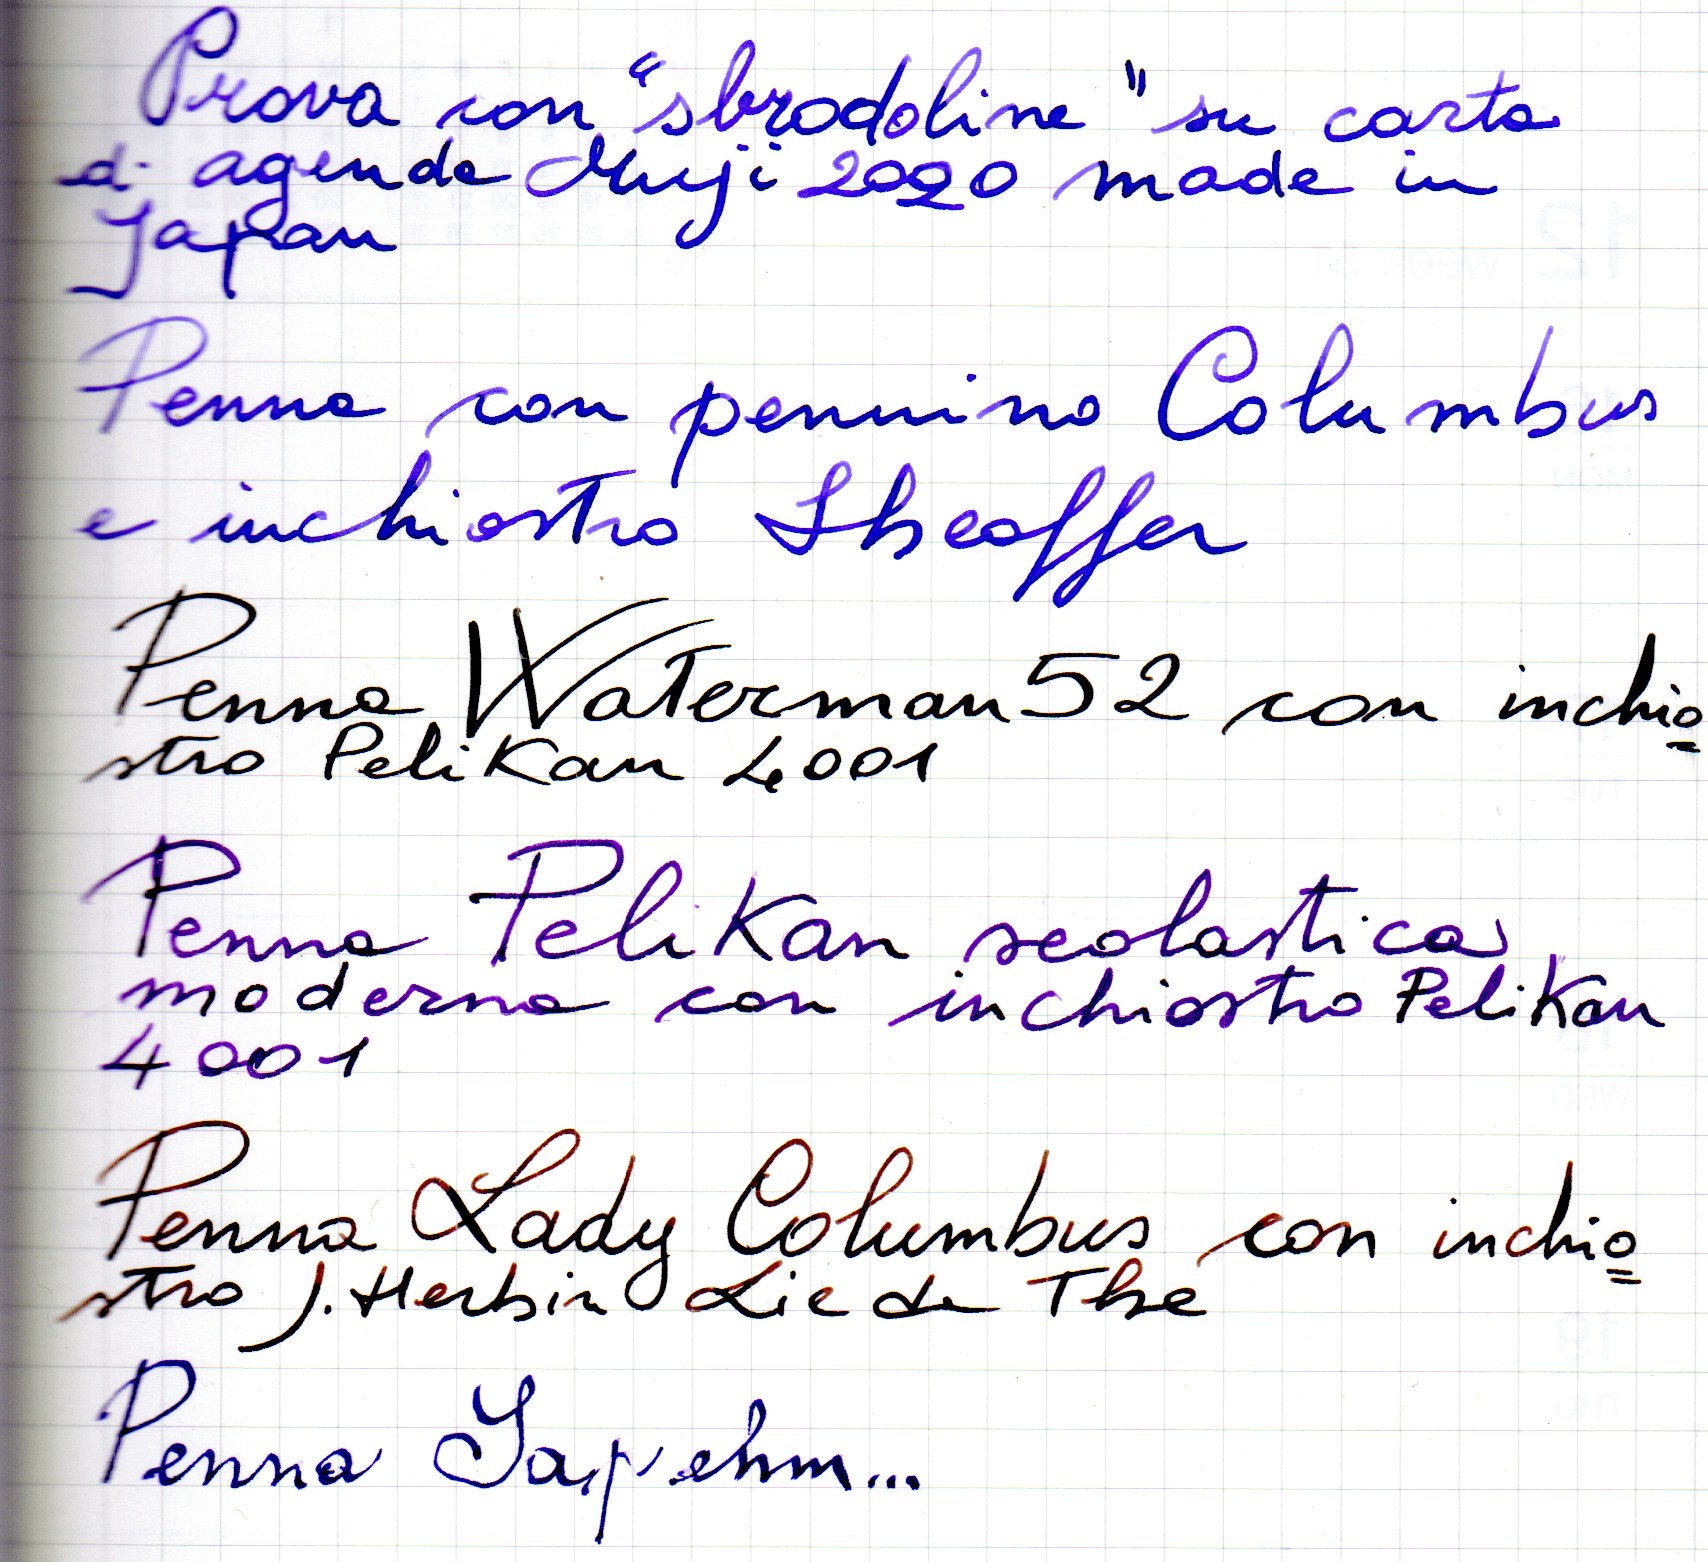 Prova con "sbrodoline" su carta
di agenda Muji 2020 made in
Japan
Penna con pennino Columbus
e inchiostro Sheaffer
Penna Waterman 52 con inchio
stro Pelikan 4001
Penna Pelikan scolastica
moderna con inchiostro Pelikan
4001
Penna Lady Columbus con inchio
stro J. Herbin Lie de The
Penna Jap ehm...